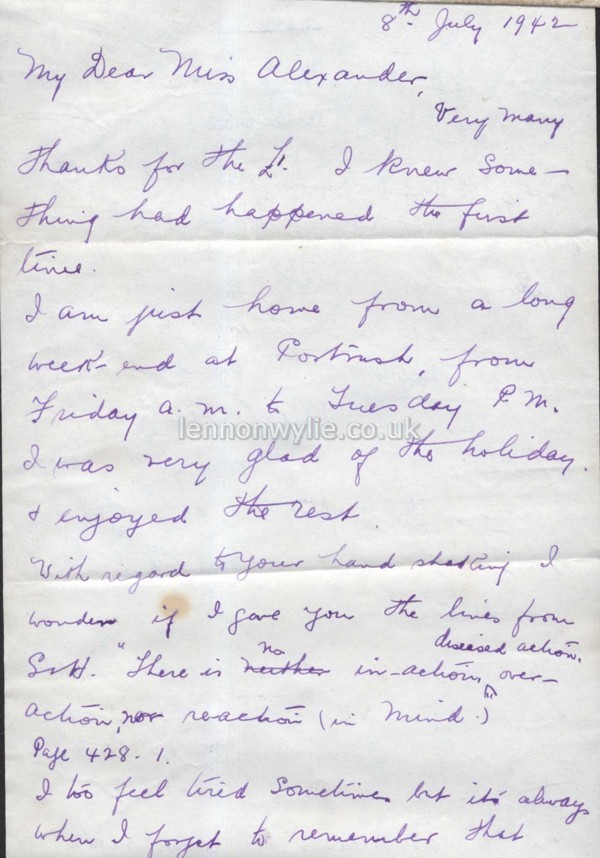 8th July 1942
My Dear Miss Alexander,
Very many
thanks for the £1. I knew some-
thing had happened the first
time.
I am just home from a long
week-end at Portrush, from
Friday a.m. to Tuesday P.M.
lennonwylie.co.uk
I was very glad of the holiday
& enjoyed the rest.
With regard to your hand shaking I
wonder if I gave you the lines from
diseased action,
S&H. "There is neither no in-action, over-
action, nor reaction (in Mind.)"
Page 428-1.
I too feel tired sometimes but its always
when I forget to remember that